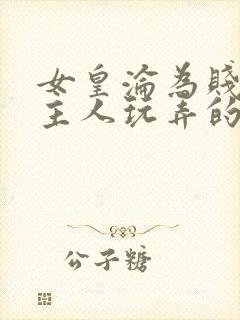 女皇淪為賤
主人玩弄的
公子糖